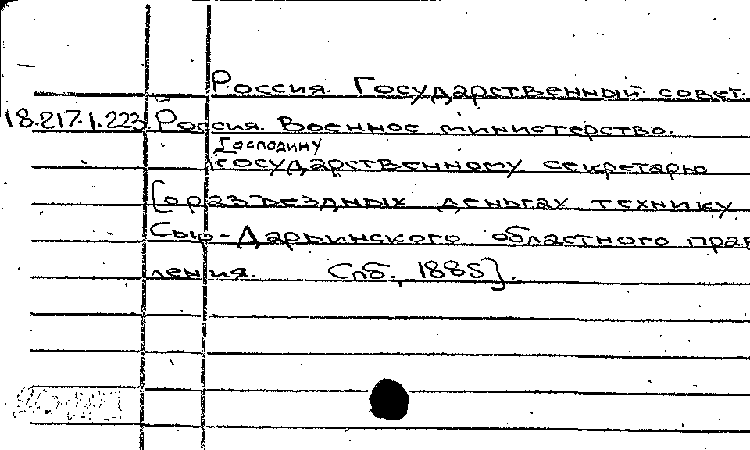 Россия. Государственный совет.
18.217.1.223 Россия. Военное министерство.
Господину
государственному секретарю
[о разъездных деньгах технику
Сыр-Дарьинского областного прав
ления. Спб., 1885].